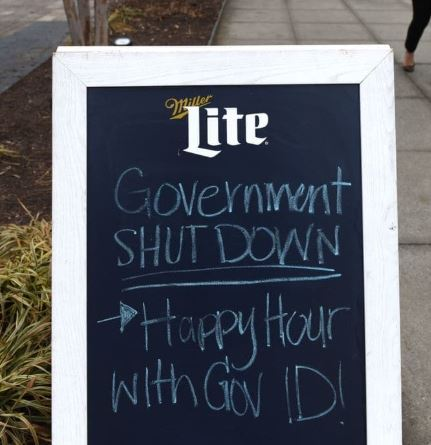 Miller
Lite
Government
SHUT DOWN
Happy Hour
with Gov ID!